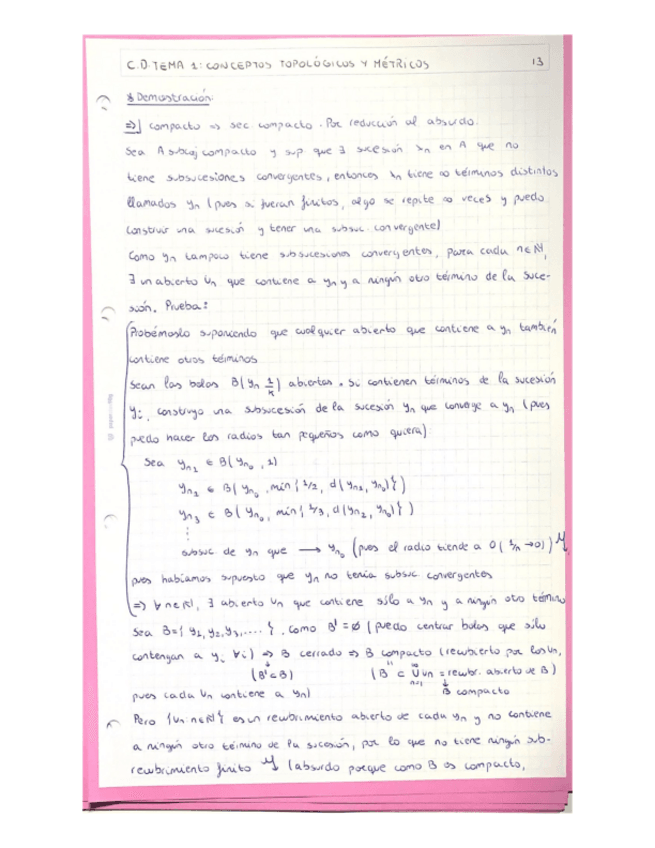 C.D. TEMA 1: CONCEPTOS TOPOLÓGICOS Y MÉTRICOS 13
* Demostración:
⇒| Compacto ⇒ sec. compacto. Por reducción al absurdo.
Sea A subcoj compacto y sup. que ∃ sucesión xn en A que no
tiene subsucesiones convergentes, entonces xn tiene ∞ términos distintos
llamados yn (pues si fueran finitos, algo se repite ∞ veces y puedo
construir una sucesión y tener una subsuc. convergente)
Como yn tampoco tiene subsucesiones convergentes, para cada n∈ℕ,
∃ un abierto Un que contiene a yn y a ningún otro término de la suce-
sión. Prueba:
Probémoslo suponiendo que cualquier abierto que contiene a yn también
contiene otros términos
Sean las bolas B(yn, 1/k) abiertas. Si contienen términos de la sucesión
yi, construyo una subsucesión de la sucesión yn que converge a yn (pues
puedo hacer los radios tan pequeños como quiera).
Sea yn₁ ∈ B(yn₀, 1)
yn₂ ∈ B(yn₀, min{1/2, d(yn₁, yn₀)})
yn₃ ∈ B(yn₀, min{1/3, d(yn₂, yn₀)})
⋮
subsuc. de yn que ⟶ yn₀ (pues el radio tiende a 0 (1/n→0))
pues habíamos supuesto que yn no tenía subsuc. convergentes
⇒ ∀n∈ℕ, ∃ abierto Un que contiene sólo a yn y a ningún otro término
Sea B={y₁, y₂, y₃, ....}. Como B'=∅ (puedo centrar bolas que sólo
contengan a yi ∀i) ⇒ B cerrado ⇒ B compacto (recubierto por los Un,
(B'⊂B) (B ⊂ ∪ Un = recubr. abierto de B)
pues cada Un contiene a yn) B compacto
Pero {Un n∈ℕ} es un recubrimiento abierto de cada yn y no contiene
a ningún otro término de la sucesión, por lo que no tiene ningún sub-
recubrimiento finito (absurdo porque como B es compacto,